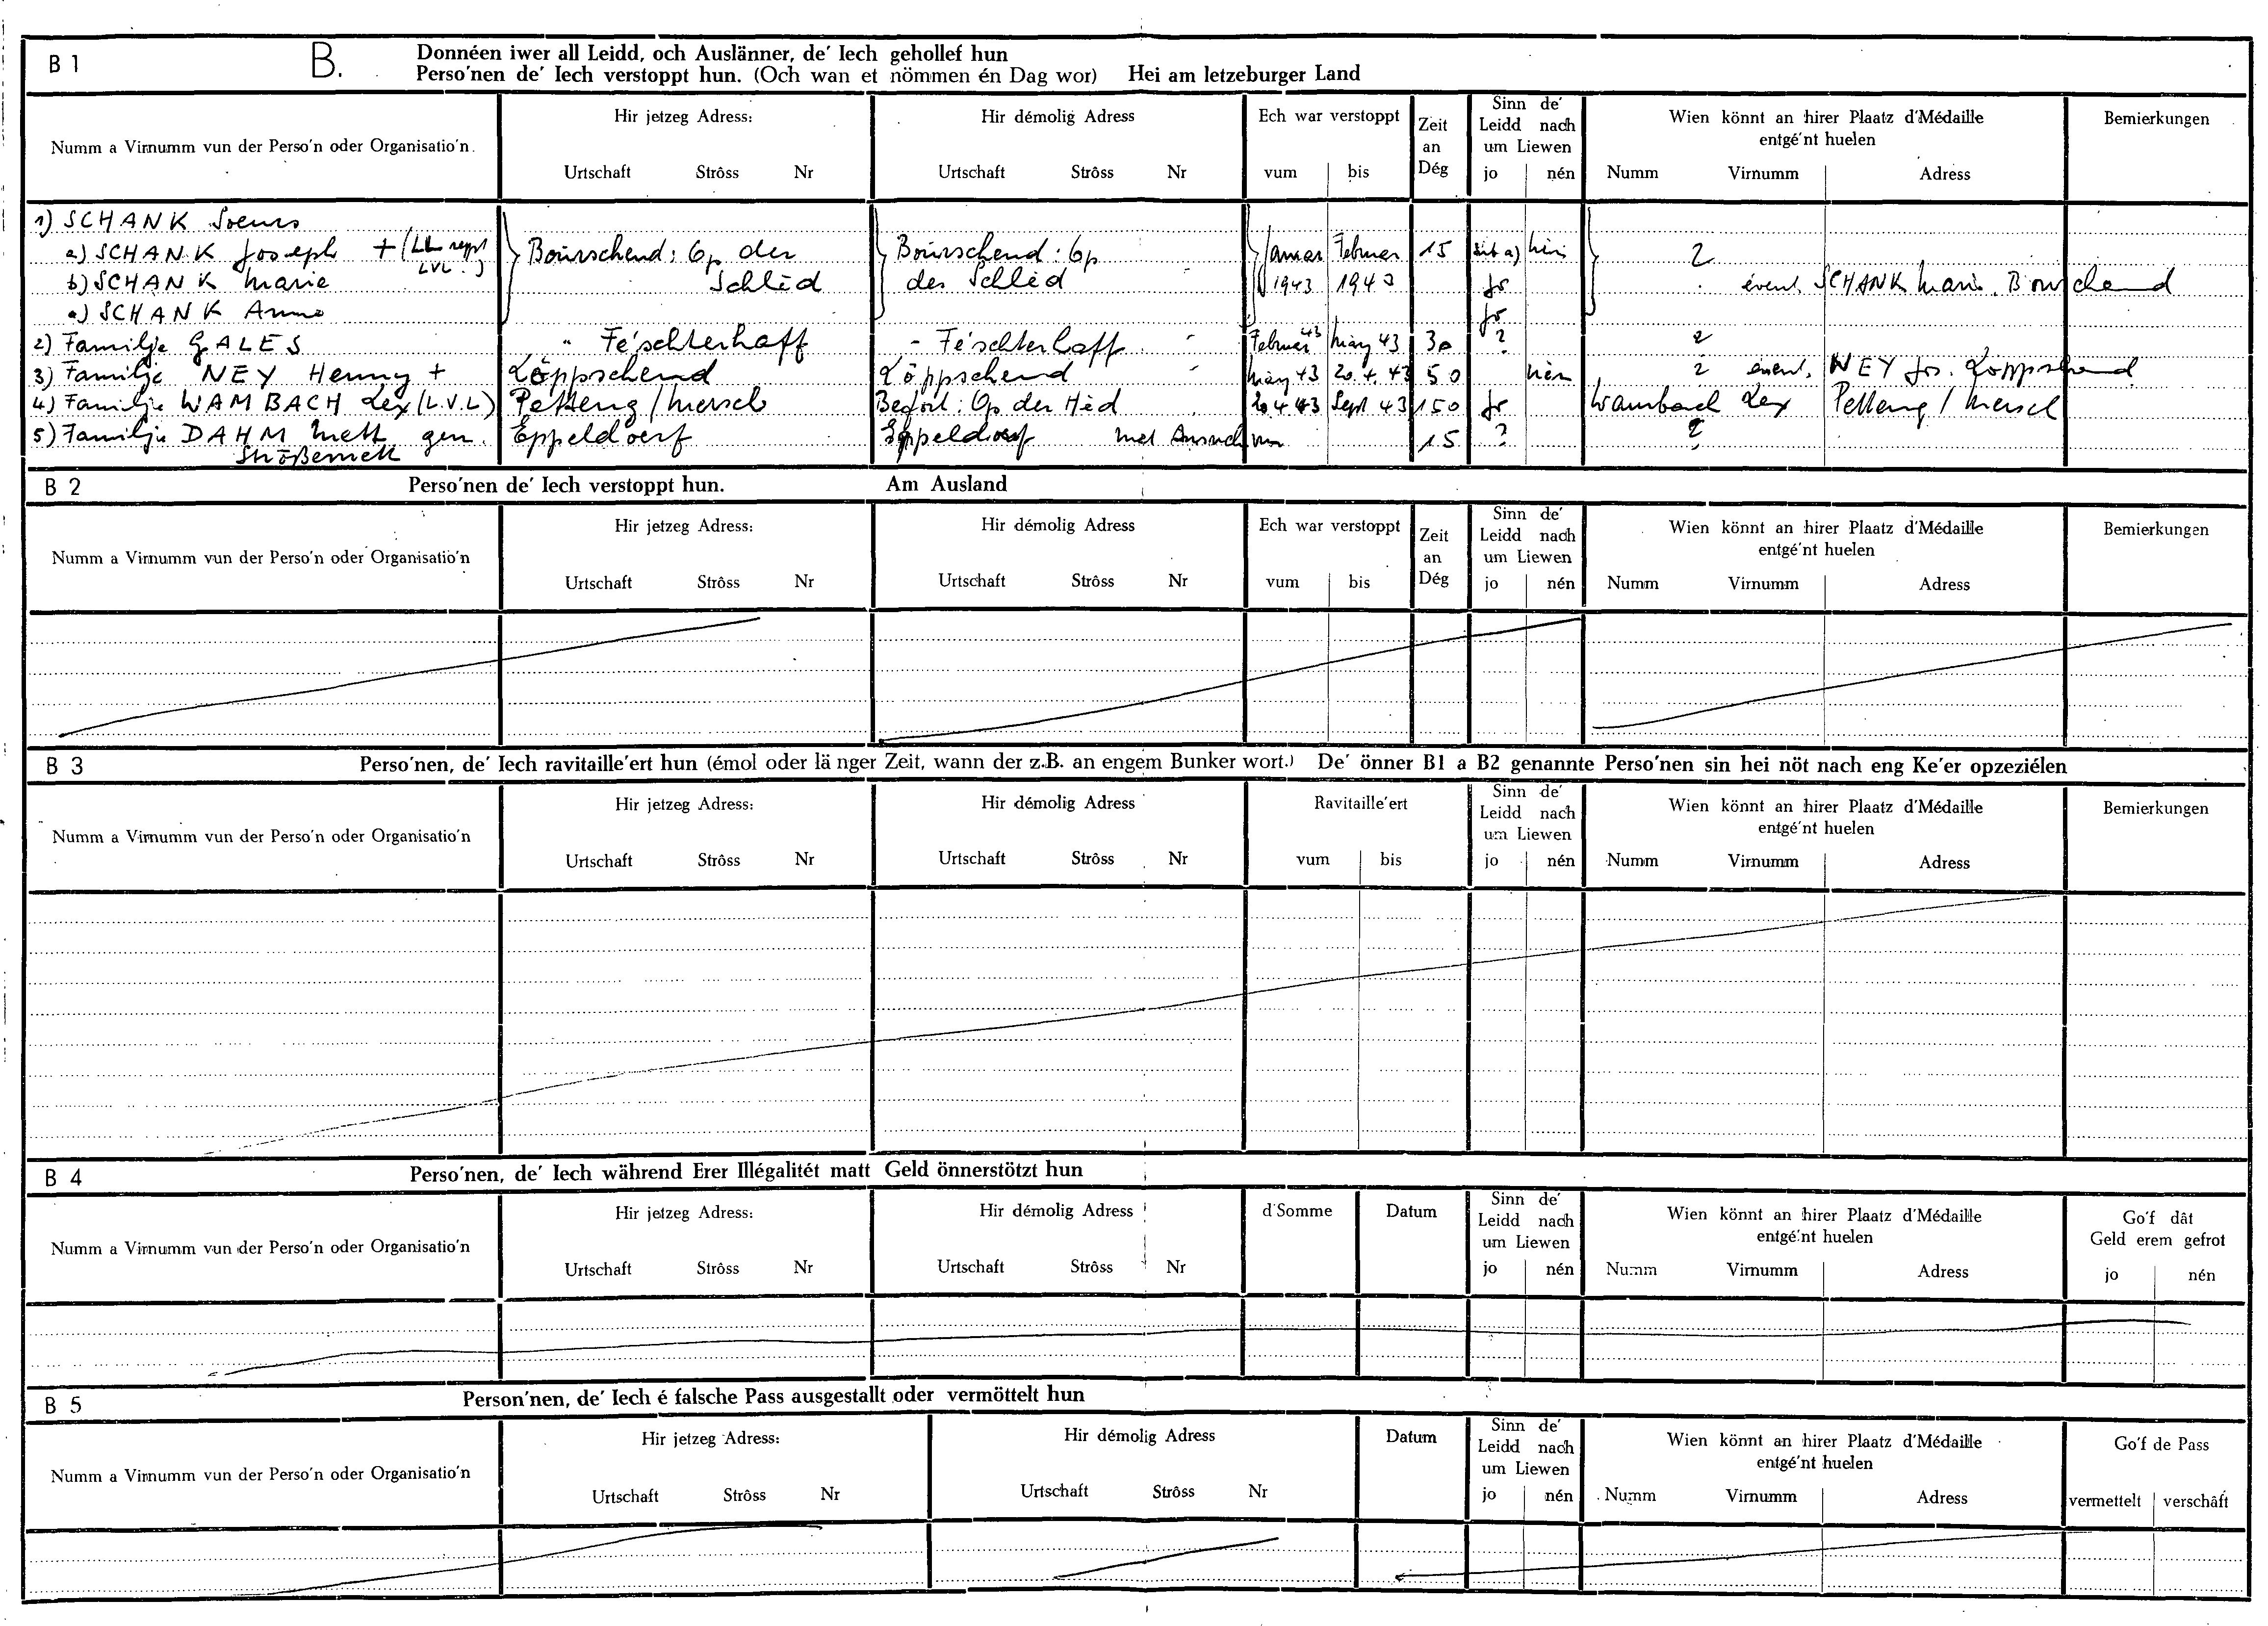 B 1 B. Donnéen iwer all Leidd, och Auslänner, de' Iech gehollef hun
Perso'nen de' Iech verstoppt hun. (Och wan et nömmen én Dag wor) Hei am letzeburger Land
Numm a Virnumm vun der Perso'n oder Organisatio'n.
Hir jetzeg Adress:
Urtschaft Strôss Nr
Hir démolig Adress
Urtschaft Strôss Nr
Ech war verstoppt
vum bis
Zeit
an
Dég
Sinn de'
Leidd nach
um Liewen
jo nén
Wien könnt an hirer Plaatz d'Médaille
entgé'nt huelen
Numm Virnumm Adress
Bemierkungen
1) SCHANK Soeurs
a) SCHANK Joseph + (LVL) Bourschend: Op der Bourschend: Op Januar Februar 15 a) nén ?
b) SCHANK Marie Schlèd der Schlèd 1943 1943 jo évent. SCHANK Marie. Bourschend
c) SCHANK Anna jo
2) Familje GALES " Fe'schterhaff " Fe'schterhaff Februar 43 März 43 30 ? ?
3) Familje NEY Henny + Löppschend Löppschend März 43 20.4.43 50 nén ? évent. NEY Jos. Löppschend
4) Familje WAMBACH Lex (L.V.L) Petteng / Mersch Befort: Op der Hèd 20.4.43 Sept 43 150 jo Wambach Lex Petteng / Mersch
5) Familje DAHM Mett gen. Eppeldoerf Eppeldoerf 15 ? ?
Strößemett
B 2 Perso'nen de' Iech verstoppt hun. Am Ausland
Numm a Virnumm vun der Perso'n oder Organisatio'n
Hir jetzeg Adress:
Urtschaft Strôss Nr
Hir démolig Adress
Urtschaft Strôss Nr
Ech war verstoppt
vum bis
Zeit
an
Dég
Sinn de'
Leidd nach
um Liewen
jo nén
Wien könnt an hirer Plaatz d'Médaille
entgé'nt huelen
Numm Virnumm Adress
Bemierkungen
B 3 Perso'nen, de' Iech ravitaille'ert hun (émol oder länger Zeit, wann der z.B. an engem Bunker wort.) De' önner B1 a B2 genannte Perso'nen sin hei nöt nach eng Ke'er opzeziélen
Numm a Virnumm vun der Perso'n oder Organisatio'n
Hir jetzeg Adress:
Urtschaft Strôss Nr
Hir démolig Adress
Urtschaft Strôss Nr
Ravitaille'ert
vum bis
Sinn de'
Leidd nach
um Liewen
jo nén
Wien könnt an hirer Plaatz d'Médaille
entgé'nt huelen
Numm Virnumm Adress
Bemierkungen
B 4 Perso'nen, de' Iech während Erer Illégalitét matt Geld önnerstötzt hun
Numm a Virnumm vun der Perso'n oder Organisatio'n
Hir jetzeg Adress:
Urtschaft Strôss Nr
Hir démolig Adress
Urtschaft Strôss Nr
d'Somme
Datum
Sinn de'
Leidd nach
um Liewen
jo nén
Wien könnt an hirer Plaatz d'Médaille
entgé'nt huelen
Numm Virnumm Adress
Go'f dât
Geld erem gefrot
jo nén
B 5 Person'nen, de' Iech é falsche Pass ausgestallt oder vermöttelt hun
Numm a Virnumm vun der Perso'n oder Organisatio'n
Hir jetzeg Adress:
Urtschaft Strôss Nr
Hir démolig Adress
Urtschaft Strôss Nr
Datum
Sinn de'
Leidd nach
um Liewen
jo nén
Wien könnt an hirer Plaatz d'Médaille
entgé'nt huelen
Numm Virnumm Adress
Go'f de Pass
vermettelt verschâft